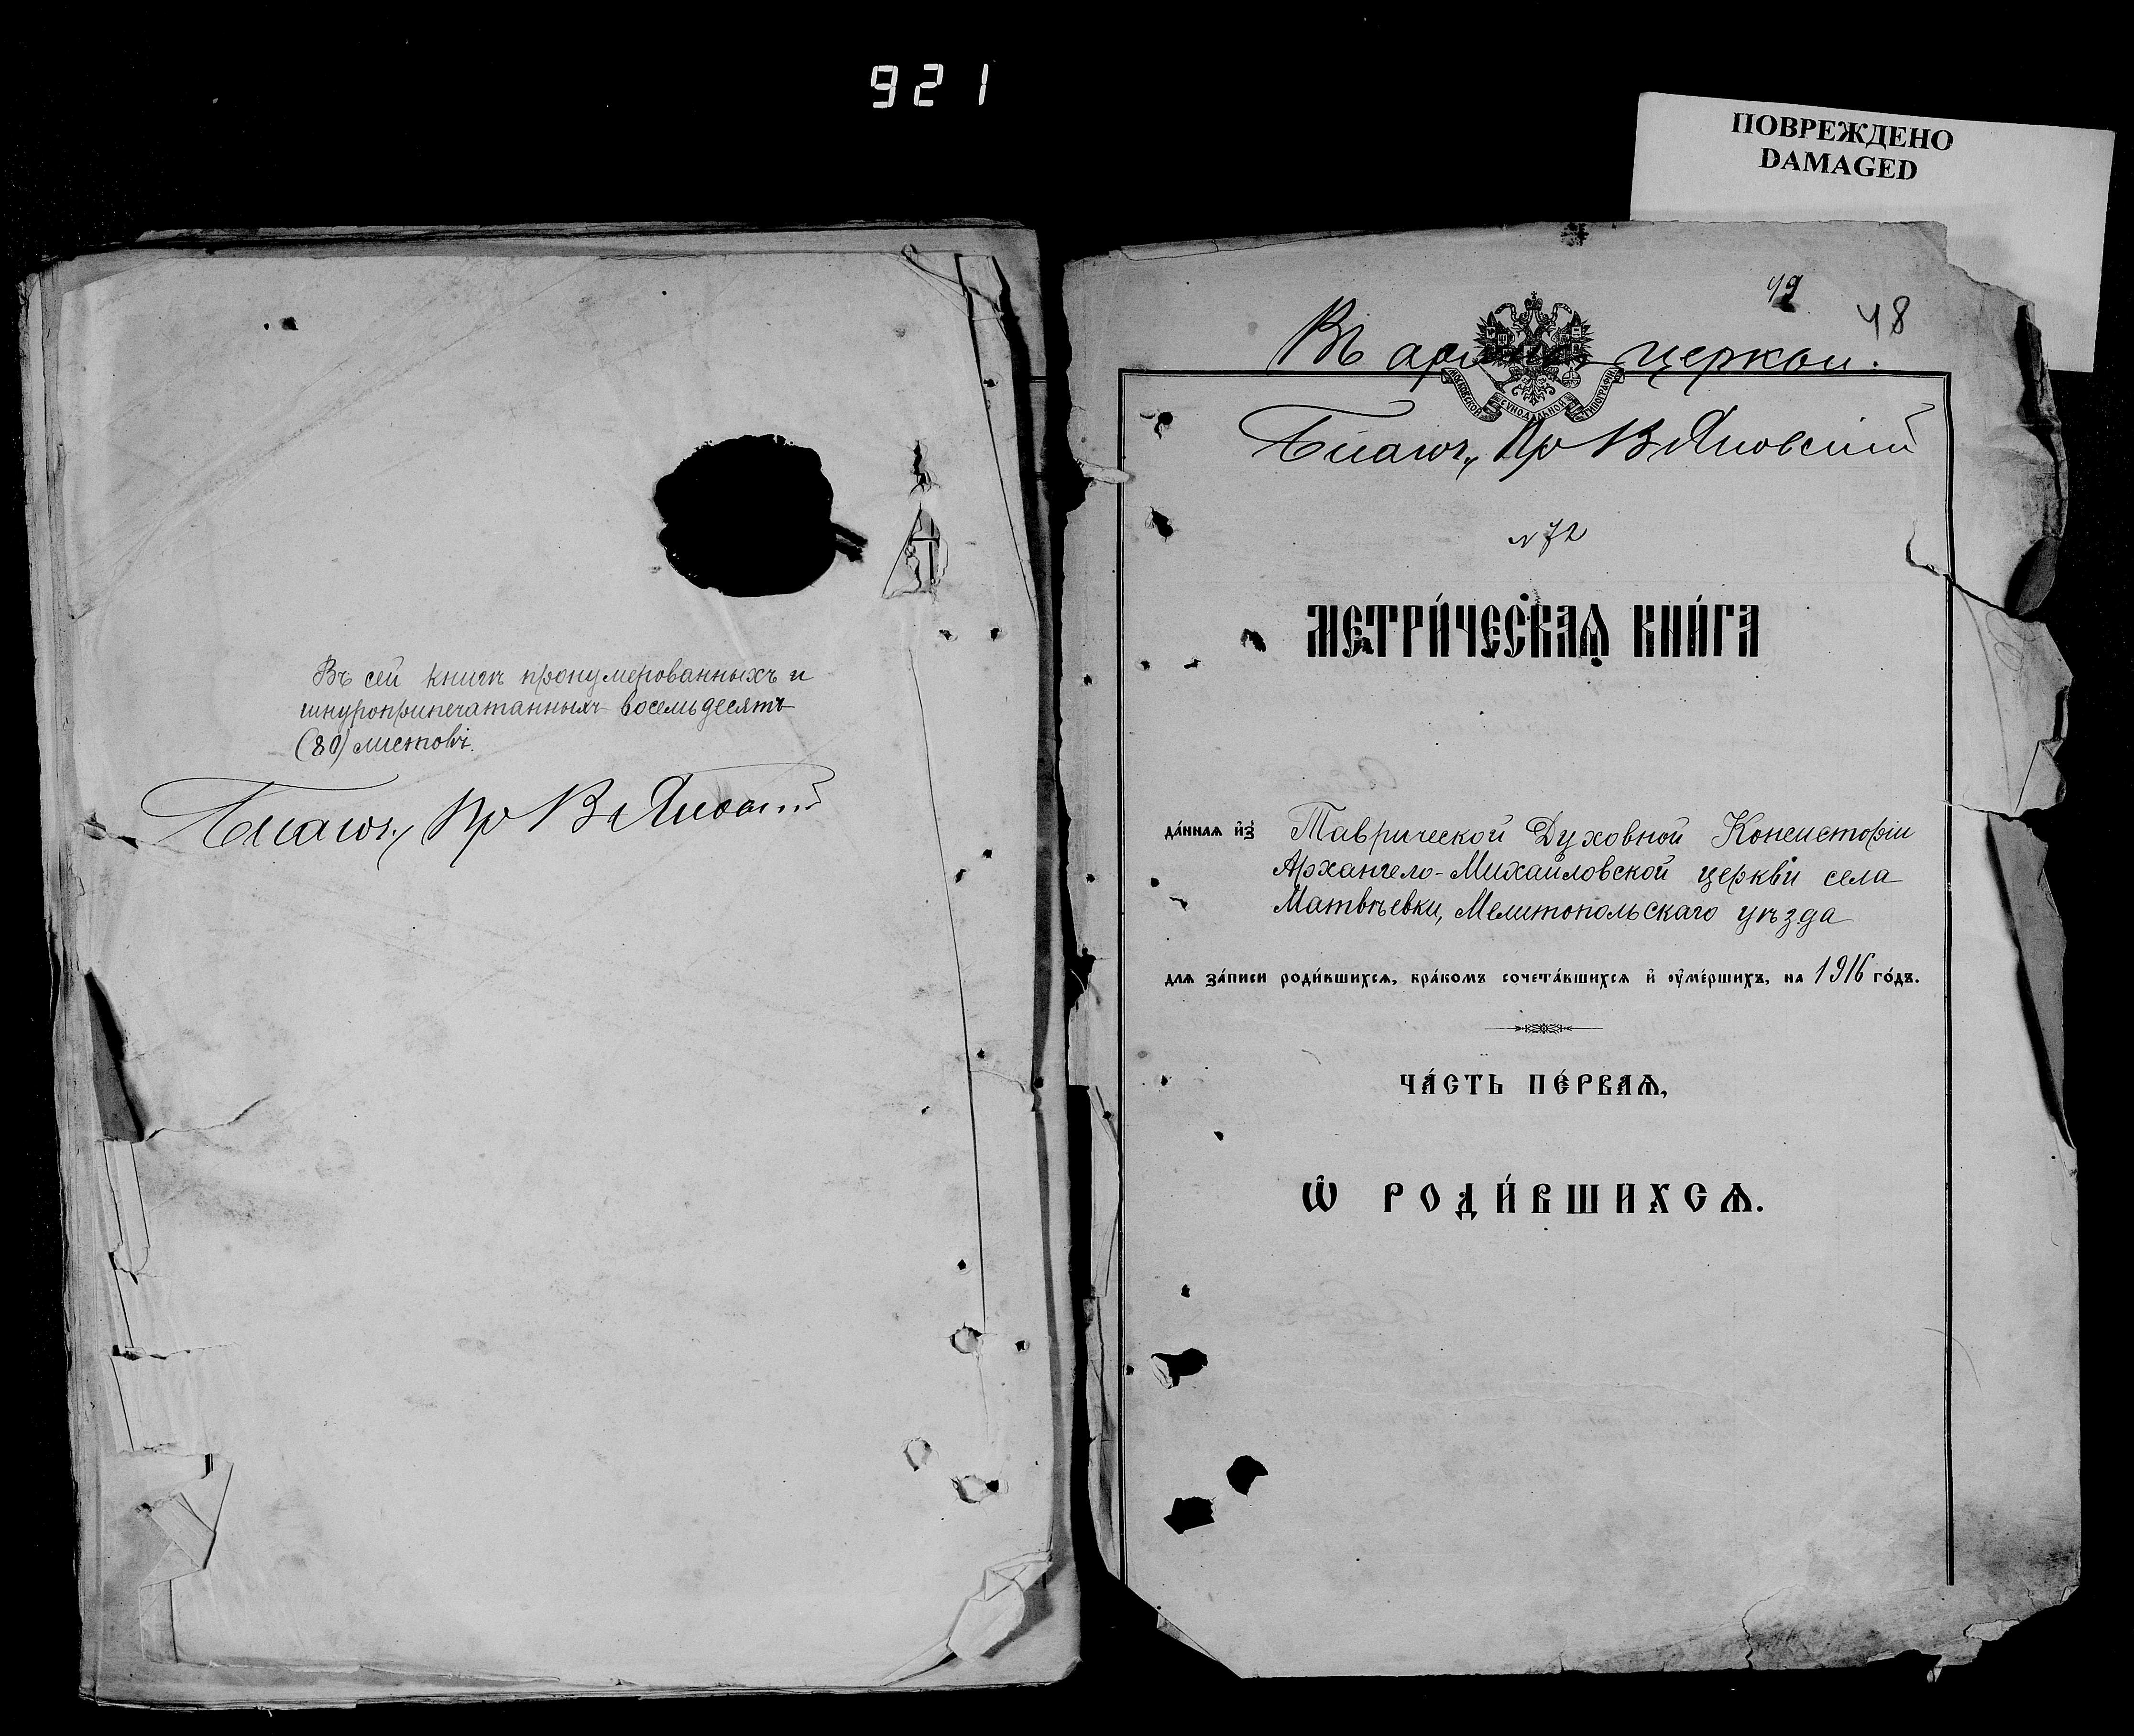 921
ПОВРЕЖДЕНО
DAMAGED
Въ сей книгѣ пронумерованныхъ и
шнуроприпечатанныхъ восемьдесятъ
(80) листовъ.
Благоч., Пр В Яновскій
49
48
Въ архивъ церкви.
МОСКОВСКОЙ СѴНОДАЛЬНОЙ ТИПОГРАФІИ
Благоч., Пр В Яновскій
№ 72
МЕТРИ́ЧЕСКАѦ КНИ́ГА
да́ннаѧ и҆з̾ Таврической Духовной Консисторіи
Архангело-Михайловской церкви села
Матвѣевки, Мелитопольскаго уѣзда
длѧ за́писи роди́вшихсѧ, бра́комъ сочета́вшихсѧ и҆ оу҆ме́ршихъ, на 1916 го́дъ.
ЧА́СТЬ ПЕ́РВАѦ,
Ѽ РОДИ́ВШИХСѦ.